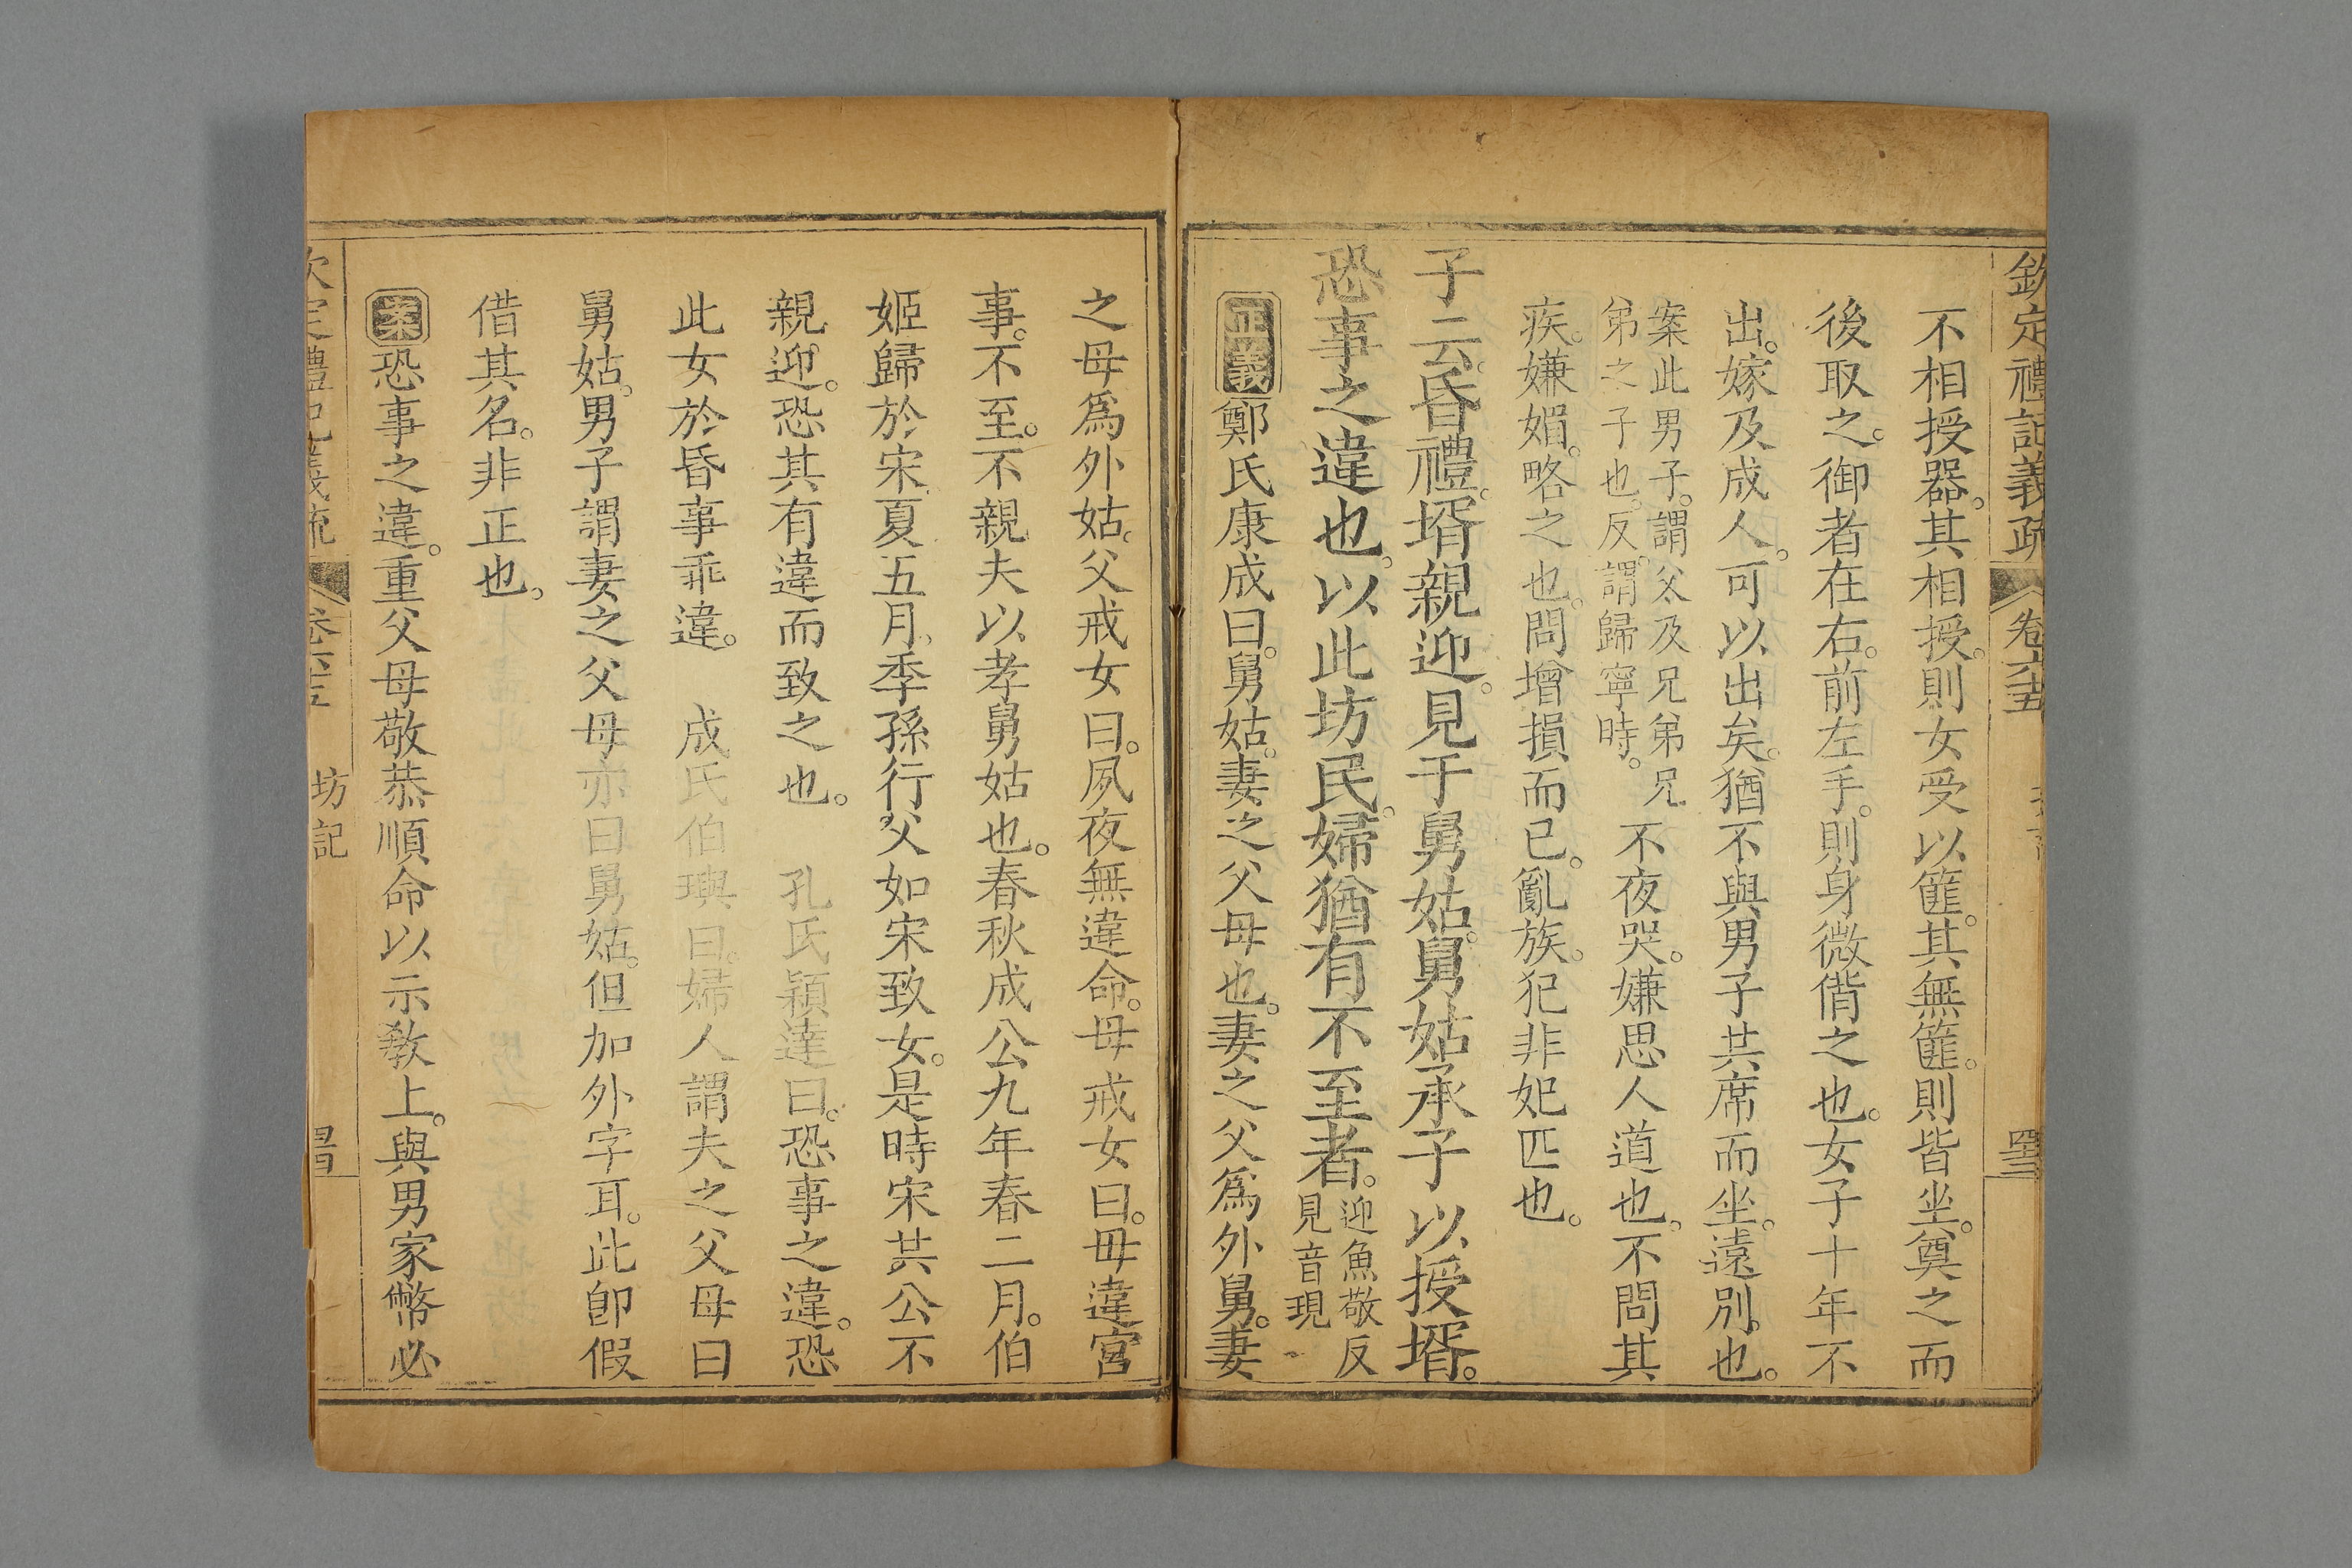 欽定禮記義疏 卷六十五
不相授器。其相授。則女受以篚。其無篚。則皆坐。奠之而
後取之。御者在右。前左手。則身微偝之也。女子十年不
出。嫁及成人。可以出矣。猶不與男子共席而坐。遠別也。
案此男子。謂父及兄弟兄
弟之子也。反。謂歸寧時。
不夜哭。嫌思人道也。不問其
疾。嫌媚。略之也。問增損而已。亂族。犯非妃匹也。
子云。昏禮。壻親迎。見于舅姑。舅姑承子以授壻。
恐事之違也。以此坊民。婦猶有不至者。
迎魚敬反
見音現
正義鄭氏康成曰。舅姑。妻之父母也。妻之父爲外舅。妻
之母爲外姑。父戒女曰。夙夜無違命。母戒女曰。毋違宮
事。不至。不親夫以孝舅姑也。春秋成公九年春二月。伯
姬歸於宋。夏五月。季孫行父如宋致女。是時宋共公不
親迎。恐其有違而致之也。 孔氏穎達曰。恐事之違。恐
此女於昏事乖違。 成氏伯璵曰。婦人謂夫之父母曰
舅姑。男子謂妻之父母亦曰舅姑。但加外字耳。此卽假
借其名。非正也。
案恐事之違。重父母敬恭順命以示敎上。與男家幣必
坊記